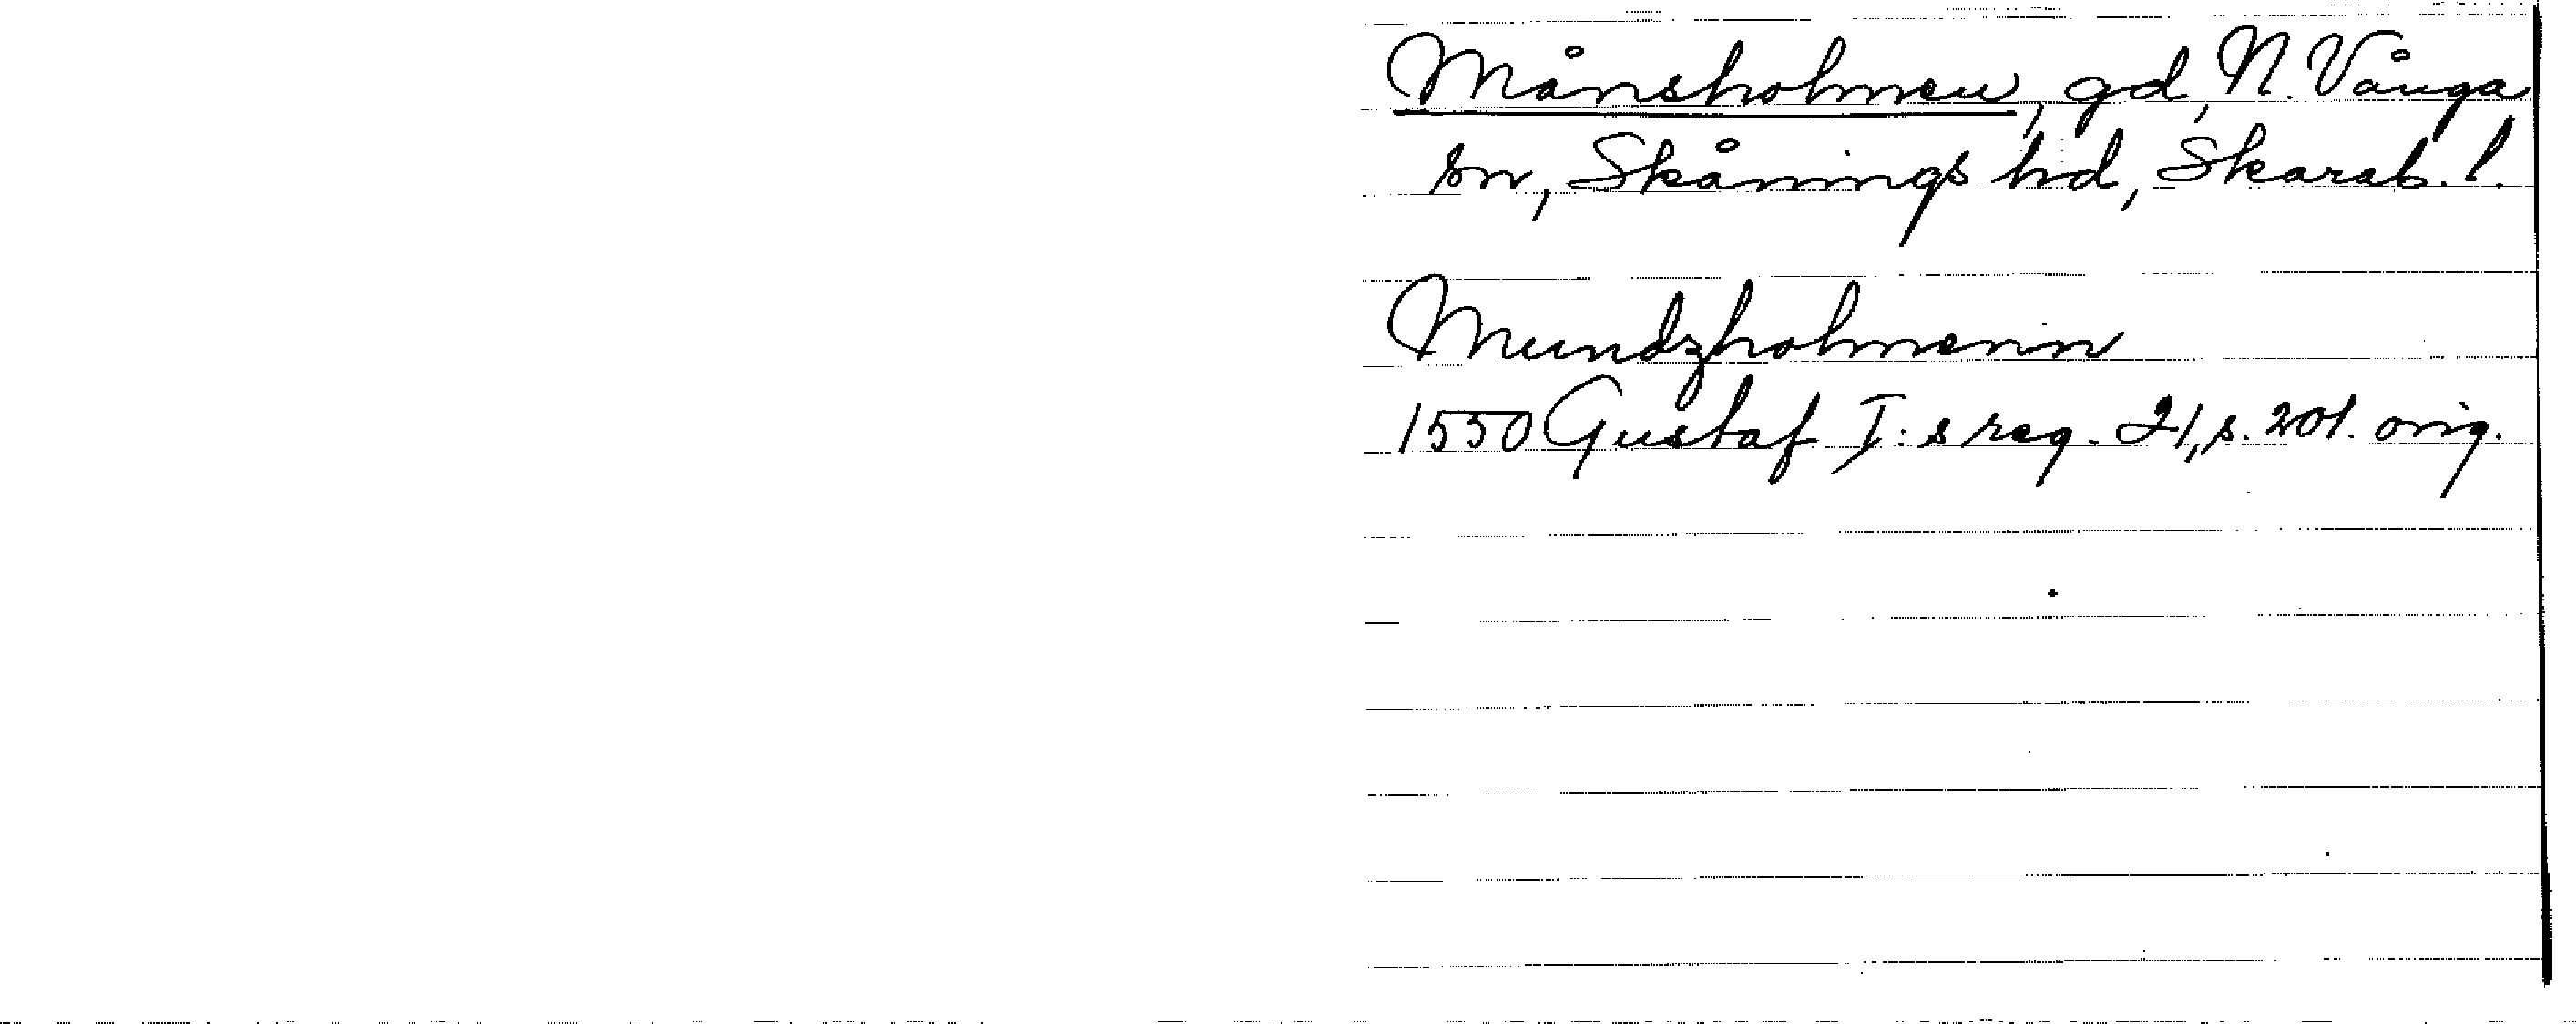 Månsholmen, gd, N. Vånga
sn, Skånings hd, Skarab. l.
Mundzholmenn
1550 Gustaf I:s reg. 21, s. 201. orig.